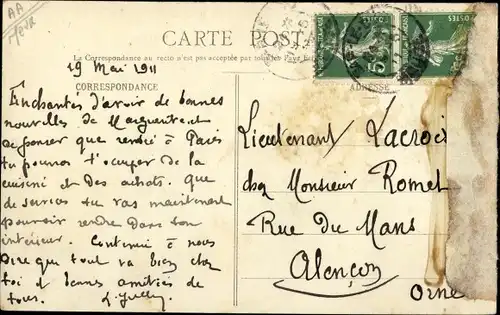 AA
CARTE POSTALE
La Correspondance au recto n'est pas acceptée par tous les Pays
19 Mai 1911
CORRESPONDANCE
ADRESSE
Enchantés d'avoir de bonnes
nouvelles de Marguerite et
de penser que rendue à Paris
tu pourras t'occuper de la
cuisine et des achats. Que
de services tu vas maintenant
pouvoir rendre dans ton
intérieur. Continue à nous
dire que tout va bien chez
toi et bonnes amitiés de
tous.
Lieutenant Lacroix
chez Monsieur Romet
Rue du Mans
Alençon
Orne